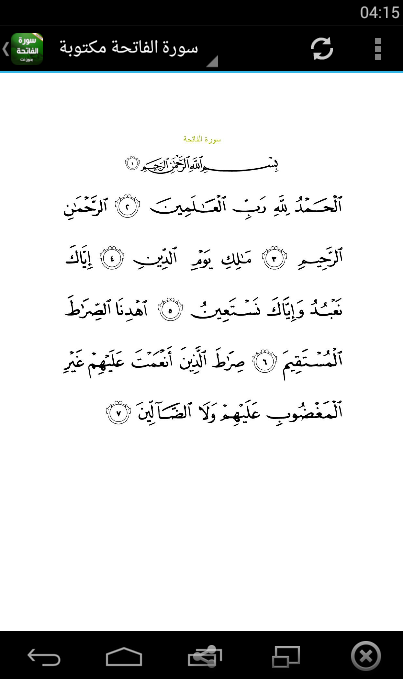 04:15
سورة الفاتحة مكتوبة
سورة
الفاتحة
سورة الفاتحة
بِسْمِ اللَّهِ الرَّحْمَٰنِ الرَّحِيمِ ١
الْحَمْدُ لِلَّهِ رَبِّ الْعَالَمِينَ ٢ الرَّحْمَٰنِ
الرَّحِيمِ ٣ مَالِكِ يَوْمِ الدِّينِ ٤ إِيَّاكَ
نَعْبُدُ وَإِيَّاكَ نَسْتَعِينُ ٥ اهْدِنَا الصِّرَاطَ
الْمُسْتَقِيمَ ٦ صِرَاطَ الَّذِينَ أَنْعَمْتَ عَلَيْهِمْ غَيْرِ
الْمَغْضُوبِ عَلَيْهِمْ وَلَا الضَّالِّينَ ٧